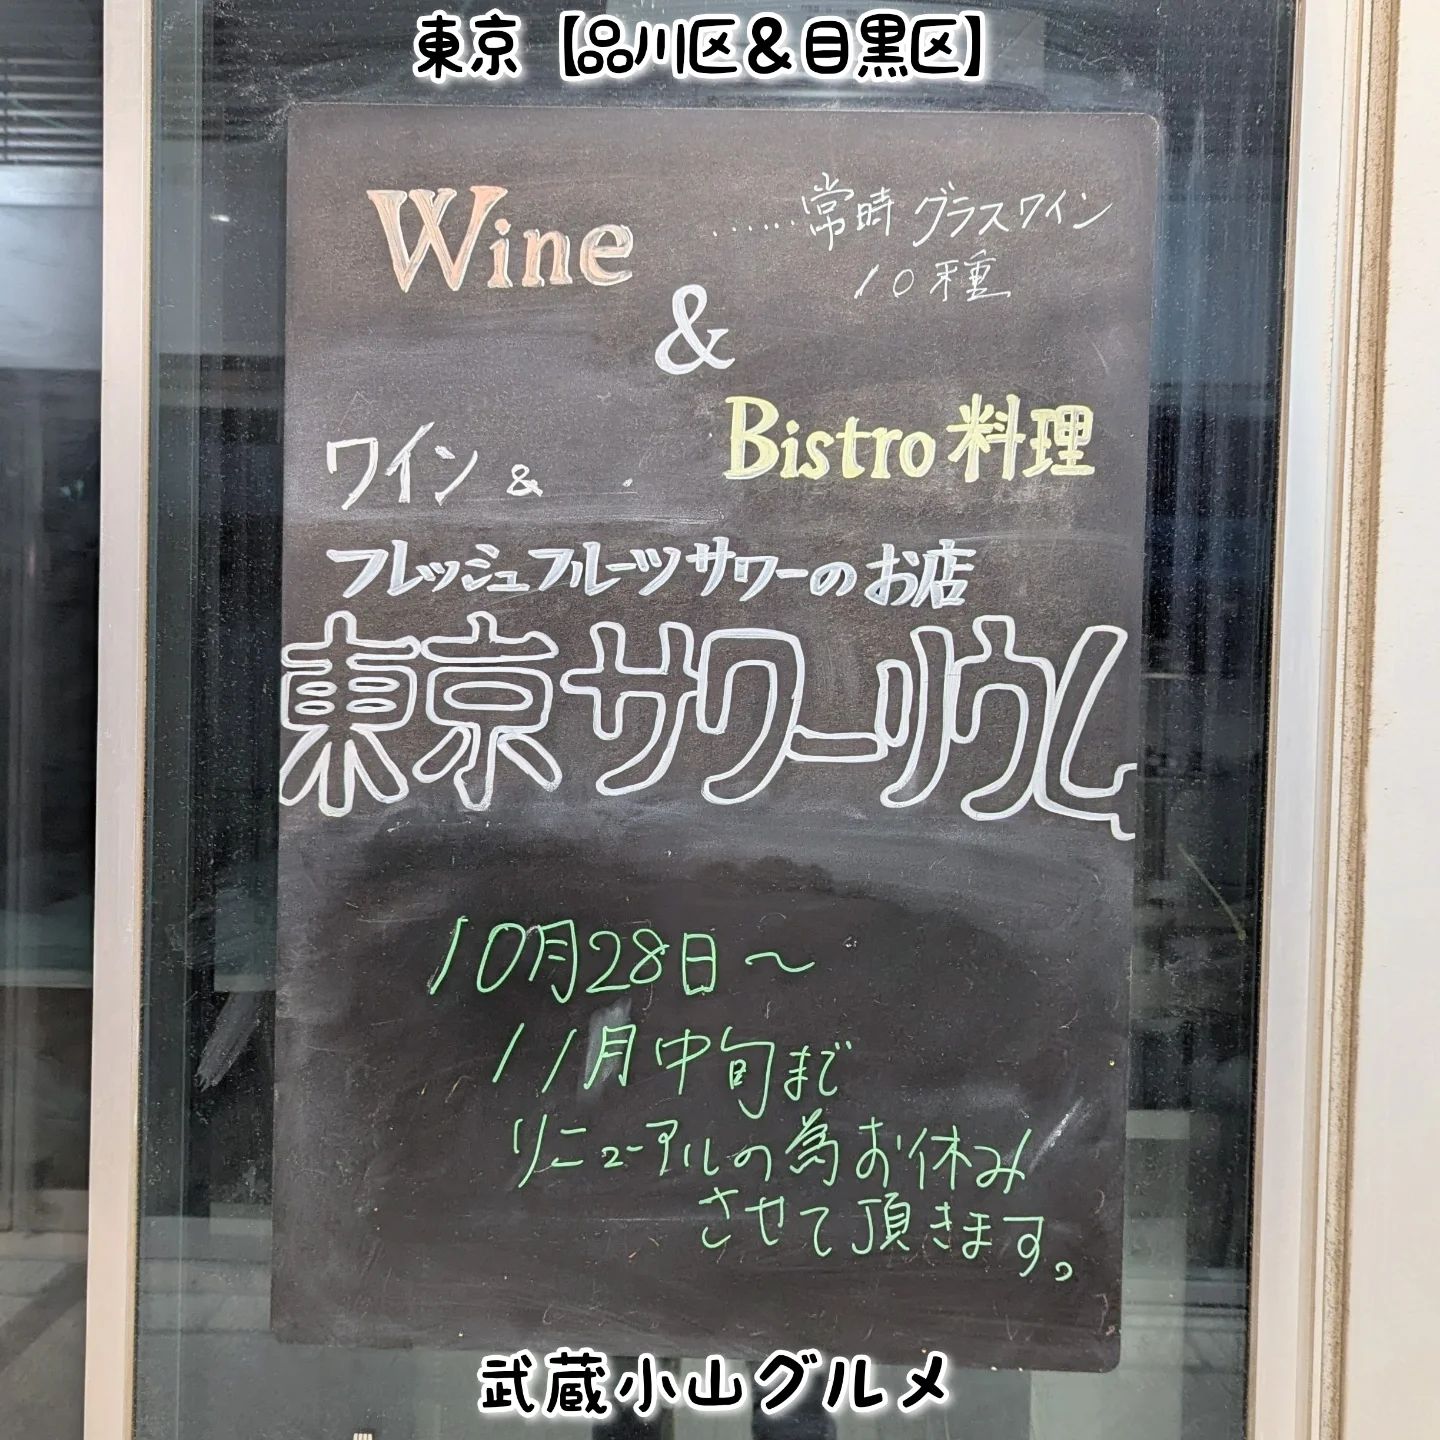 東京【品川区&目黒区】
Wine
……常時グラスワイン
10種
&
Bistro料理
ワイン &
フレッシュフルーツサワーのお店
東京サワーリウム
10月28日〜
11月中旬まで
リニューアルの為お休み
させて頂きます。
武蔵小山グルメ